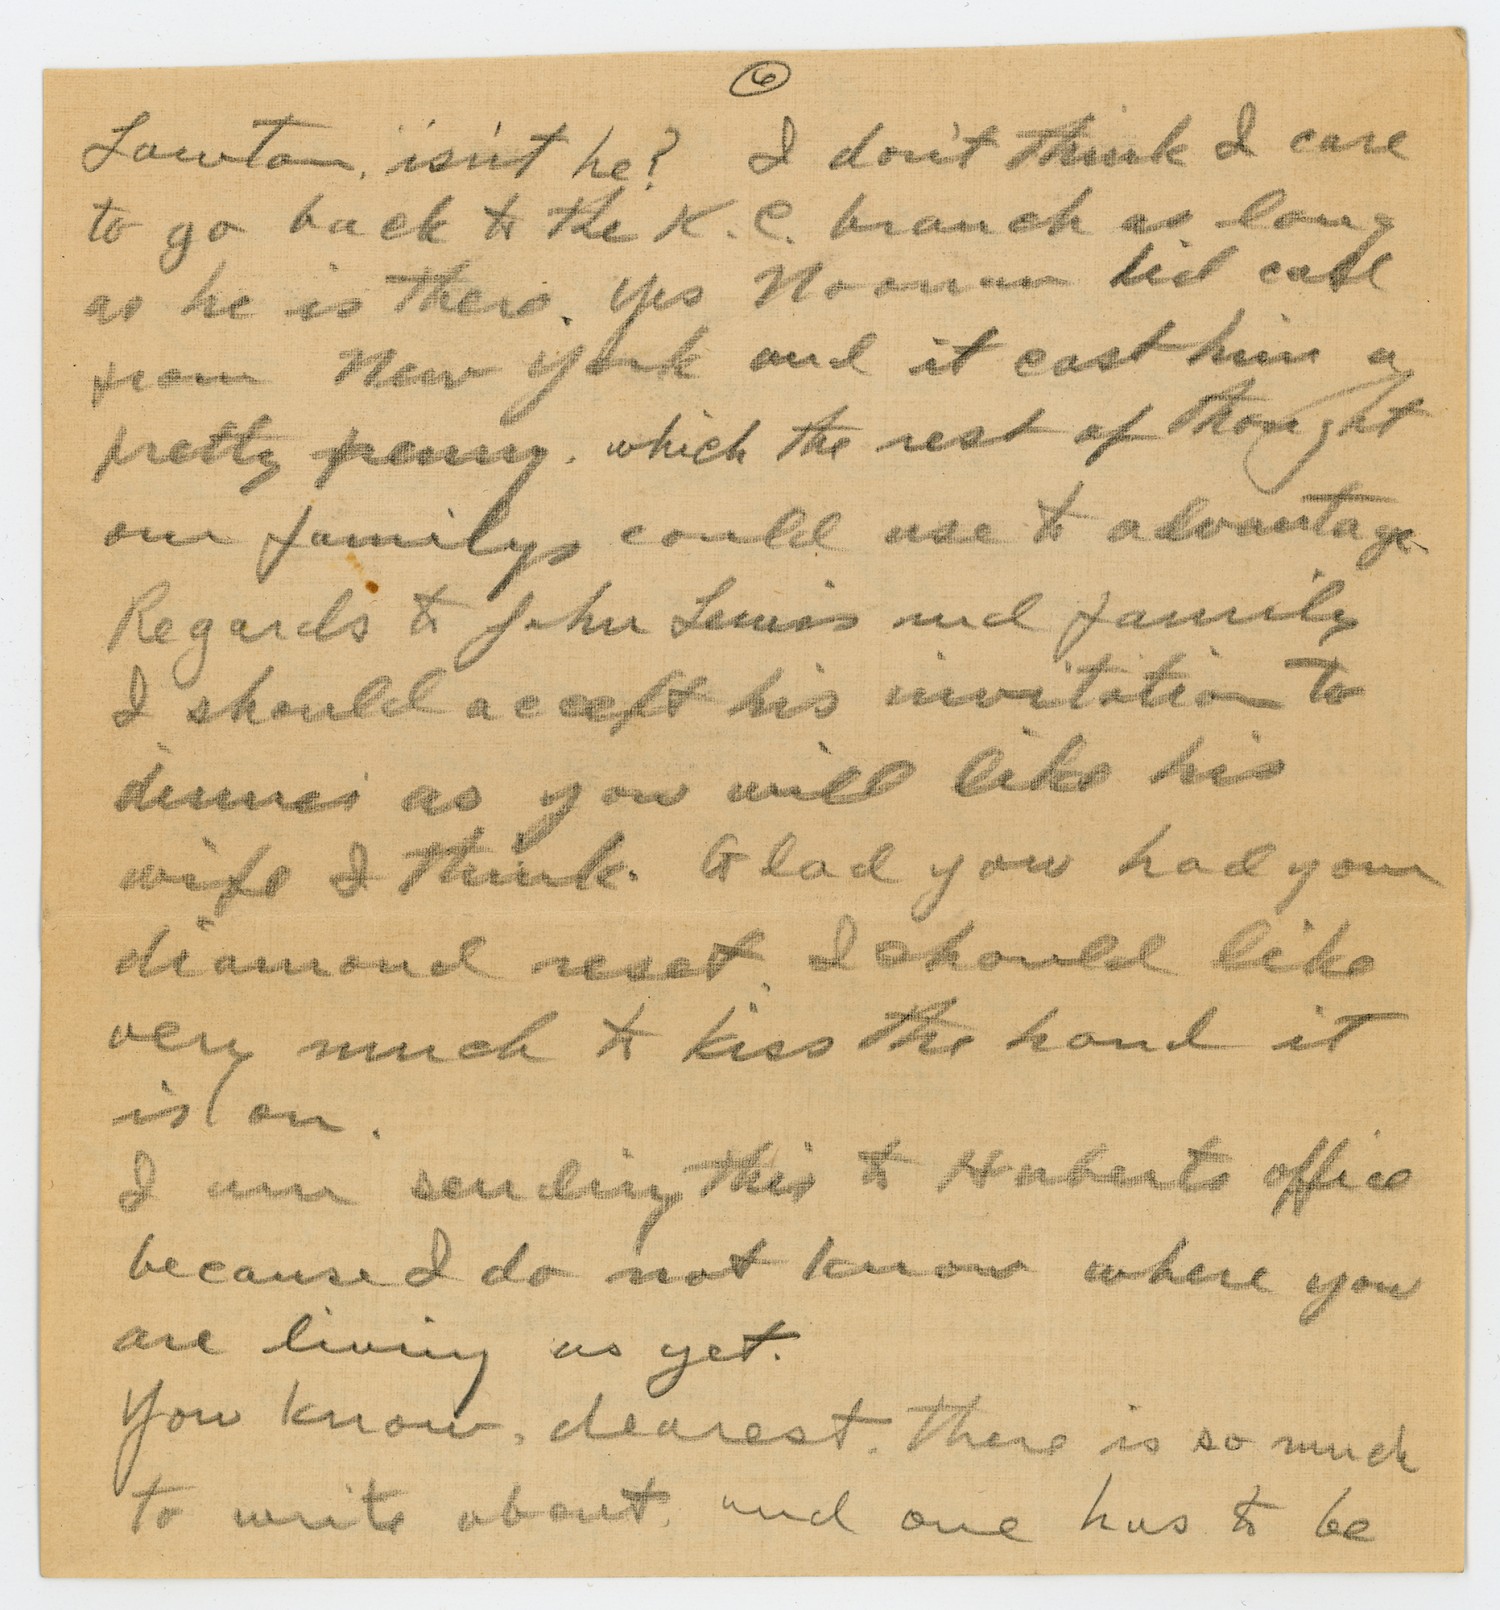 6
Lawton, isn't he? I don't think I care
to go back to the K. C. branch as long
as he is there. Yes Noonan did call
from New York and it cost him a
pretty penny. which the rest of thought
our familys could use to advantage.
Regards to John Lewis and family
I should accept his invitation to
dinner as you will like his
wife I think. Glad you had your
diamond reset. I should like
very much to kiss the hand it
is on.
I am sending this to Huberts office
because I do not know where you
are living as yet.
You know, dearest, there is so much
to write about, and one has to be